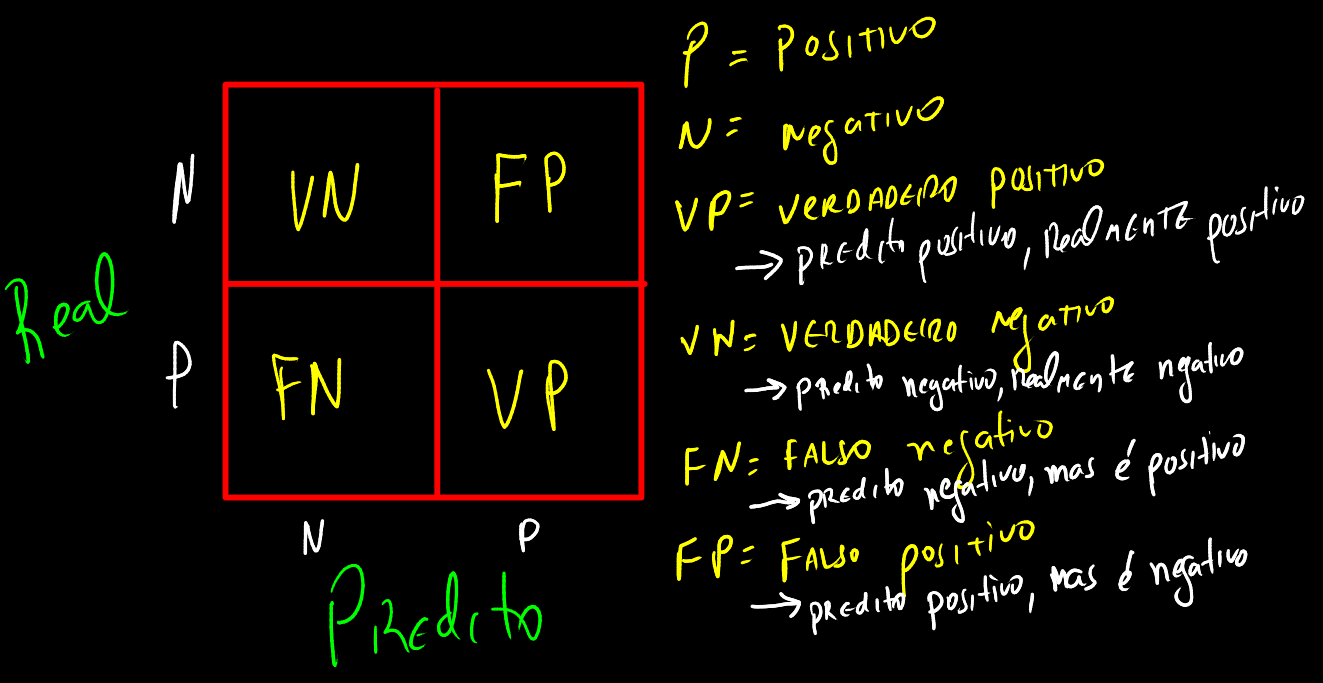 N
VN FP
Real
P
FN VP
N P
Predito
P = Positivo
N = negativo
VP = VERDADEIRO positivo
→ predito positivo, Realmente positivo
VN = VERDADEIRO negativo
→ predito negativo, realmente ngativo
FN = FALSO negativo
→ predito negativo, mas é positivo
FP = FALSO positivo
→ predito positivo, mas é negativo